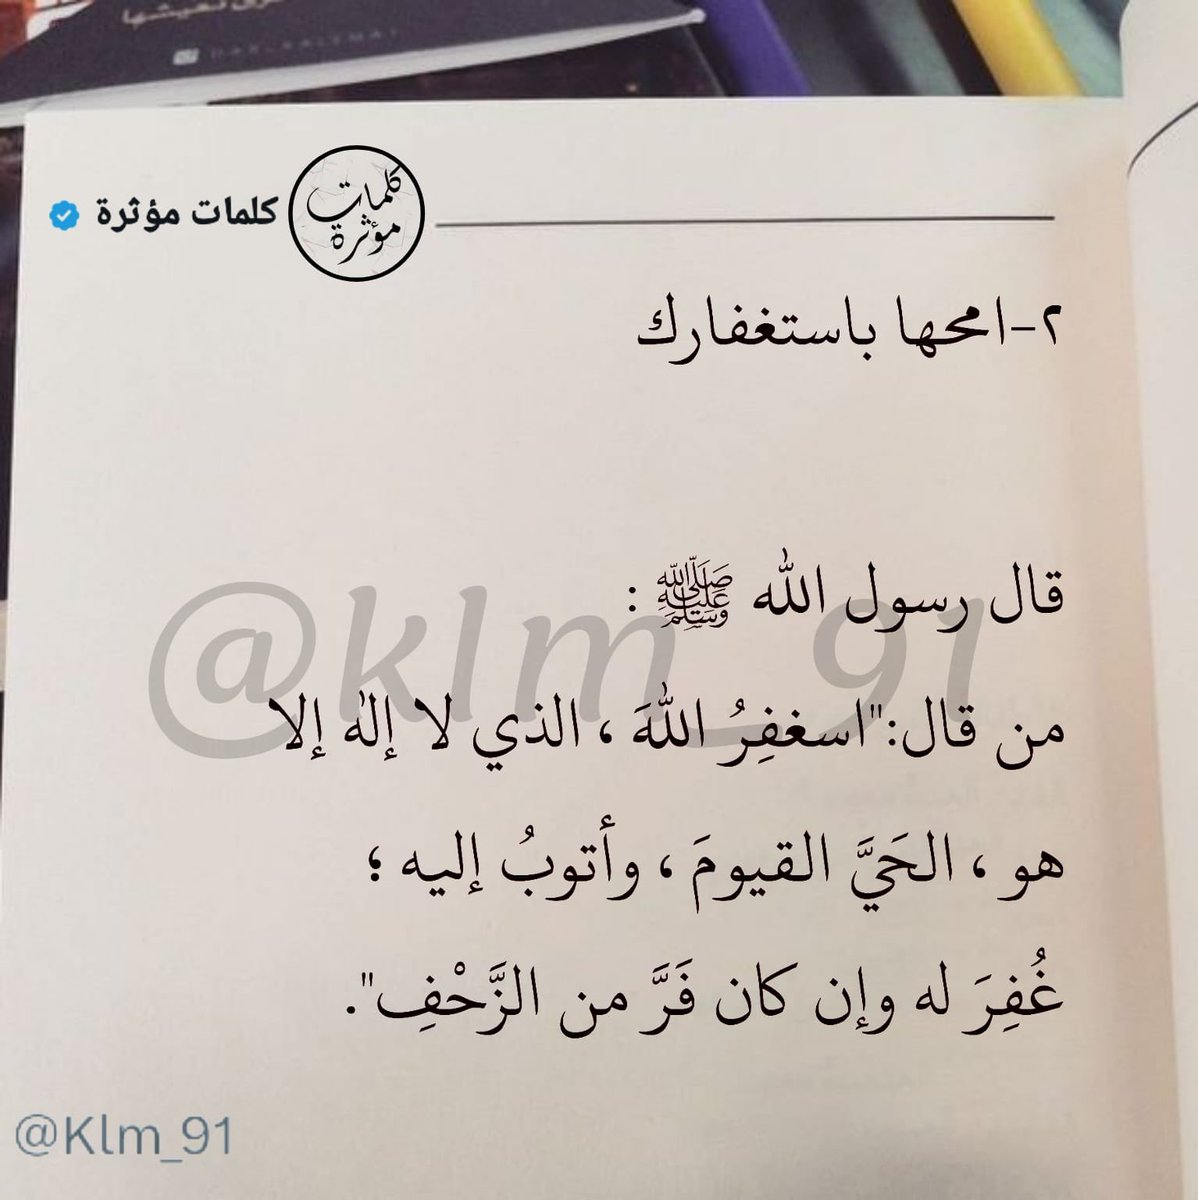 نعيشها
DARKALEMAT
كلمات مؤثرة
كلمات مؤثرة
٢-امحها باستغفارك
قال رسول الله ﷺ :
@klm_91
من قال:"اسغفِرُ اللهَ ، الذي لا إلهَ إلا
هو ، الحَيَّ القيومَ ، وأتوبُ إليه ؛
غُفِرَ له وإن كان فَرَّ من الزَّحْفِ".
@Klm_91